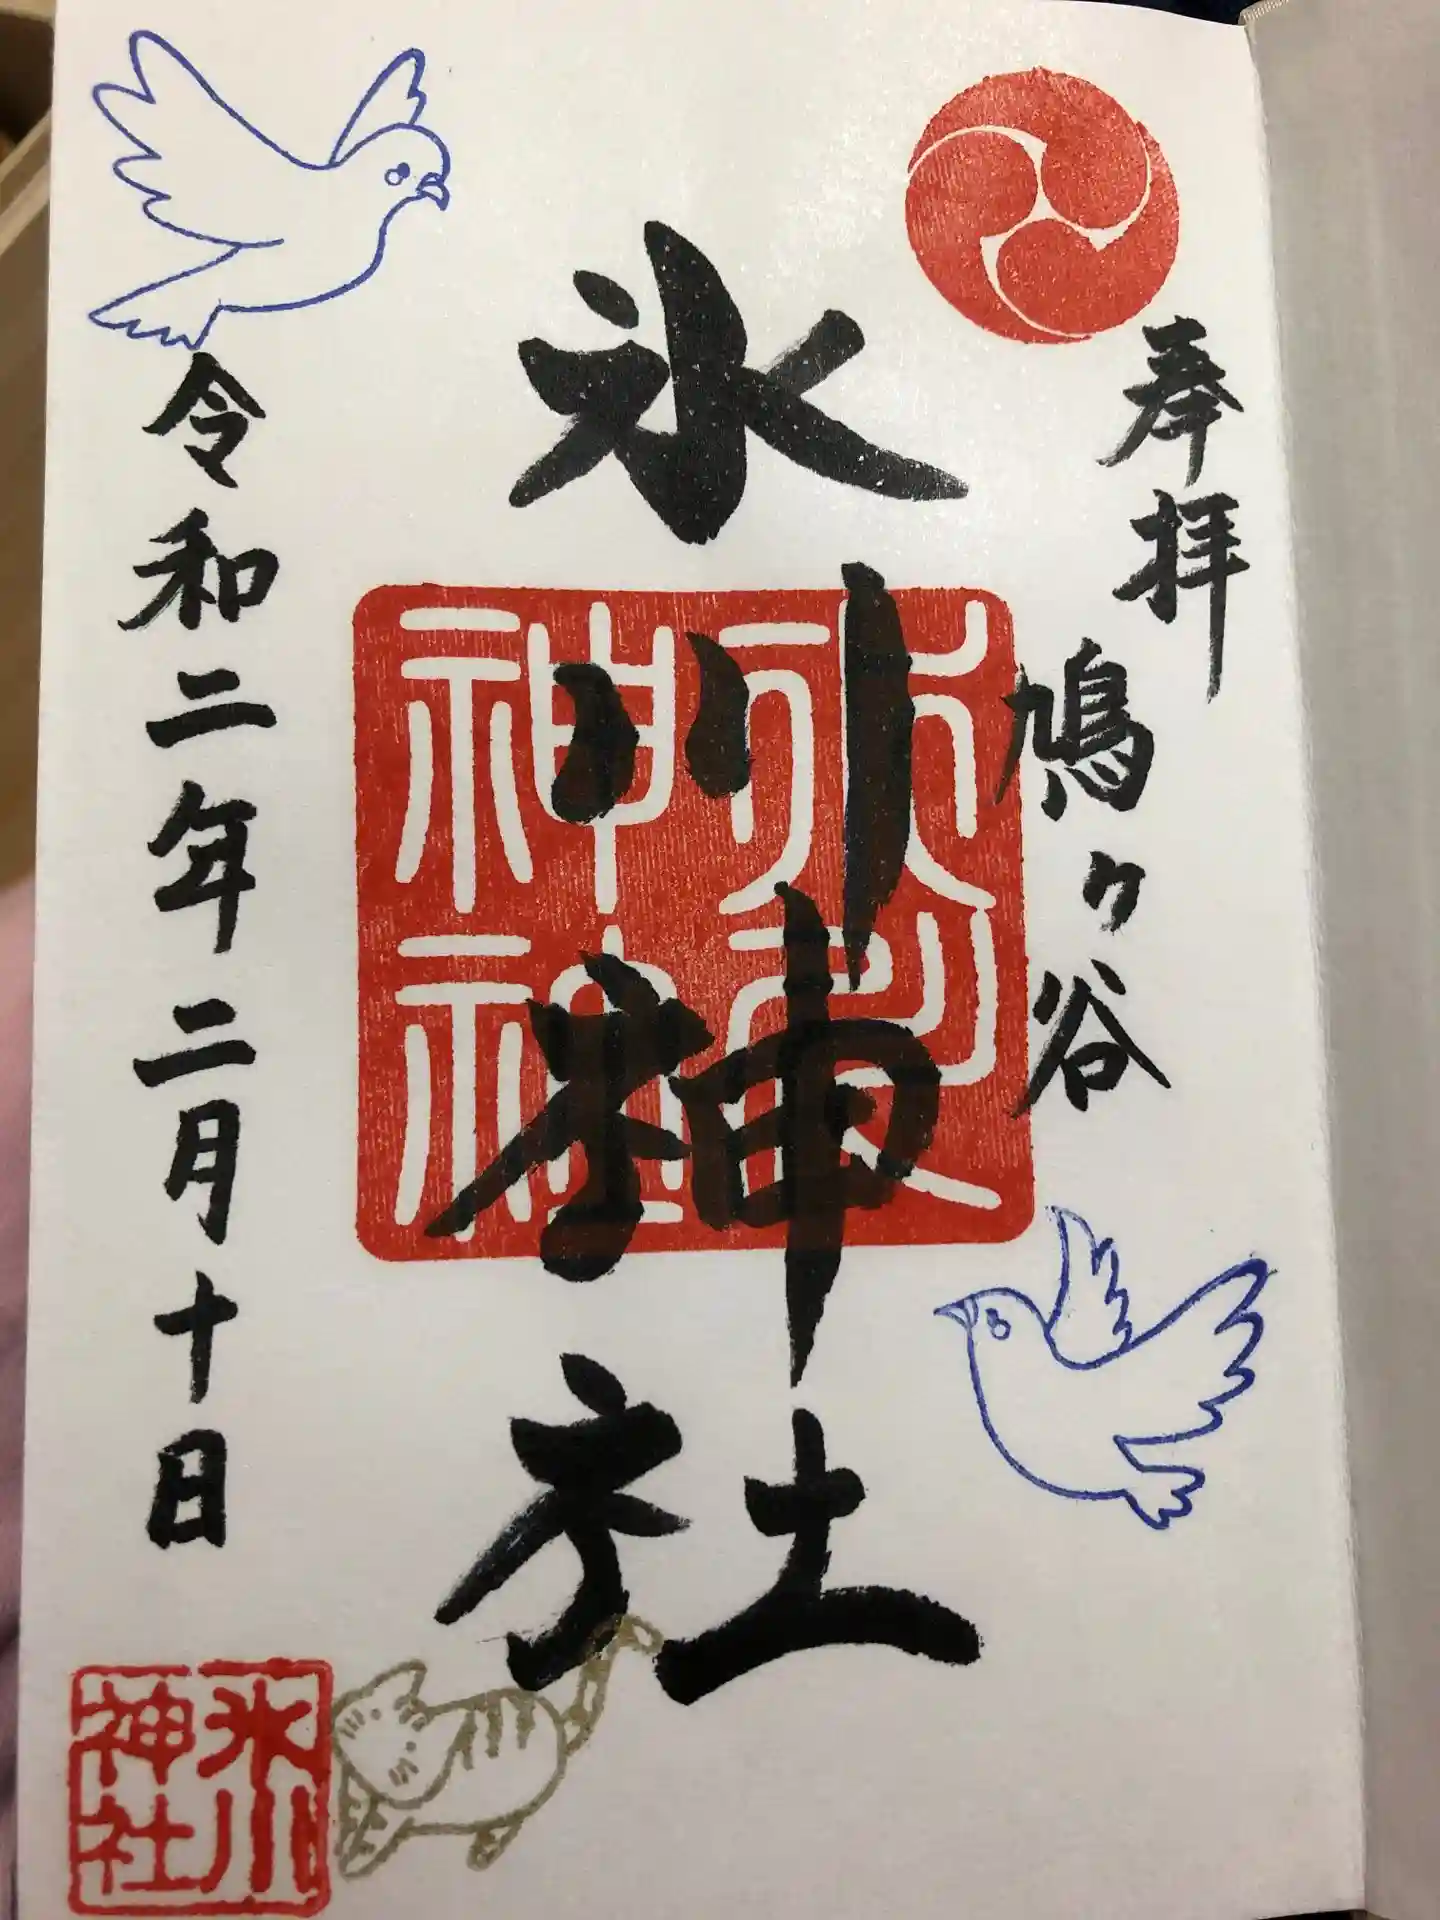 奉拝
鳩ヶ谷
氷川神社
氷川神社
令和二年二月十日
氷川神社